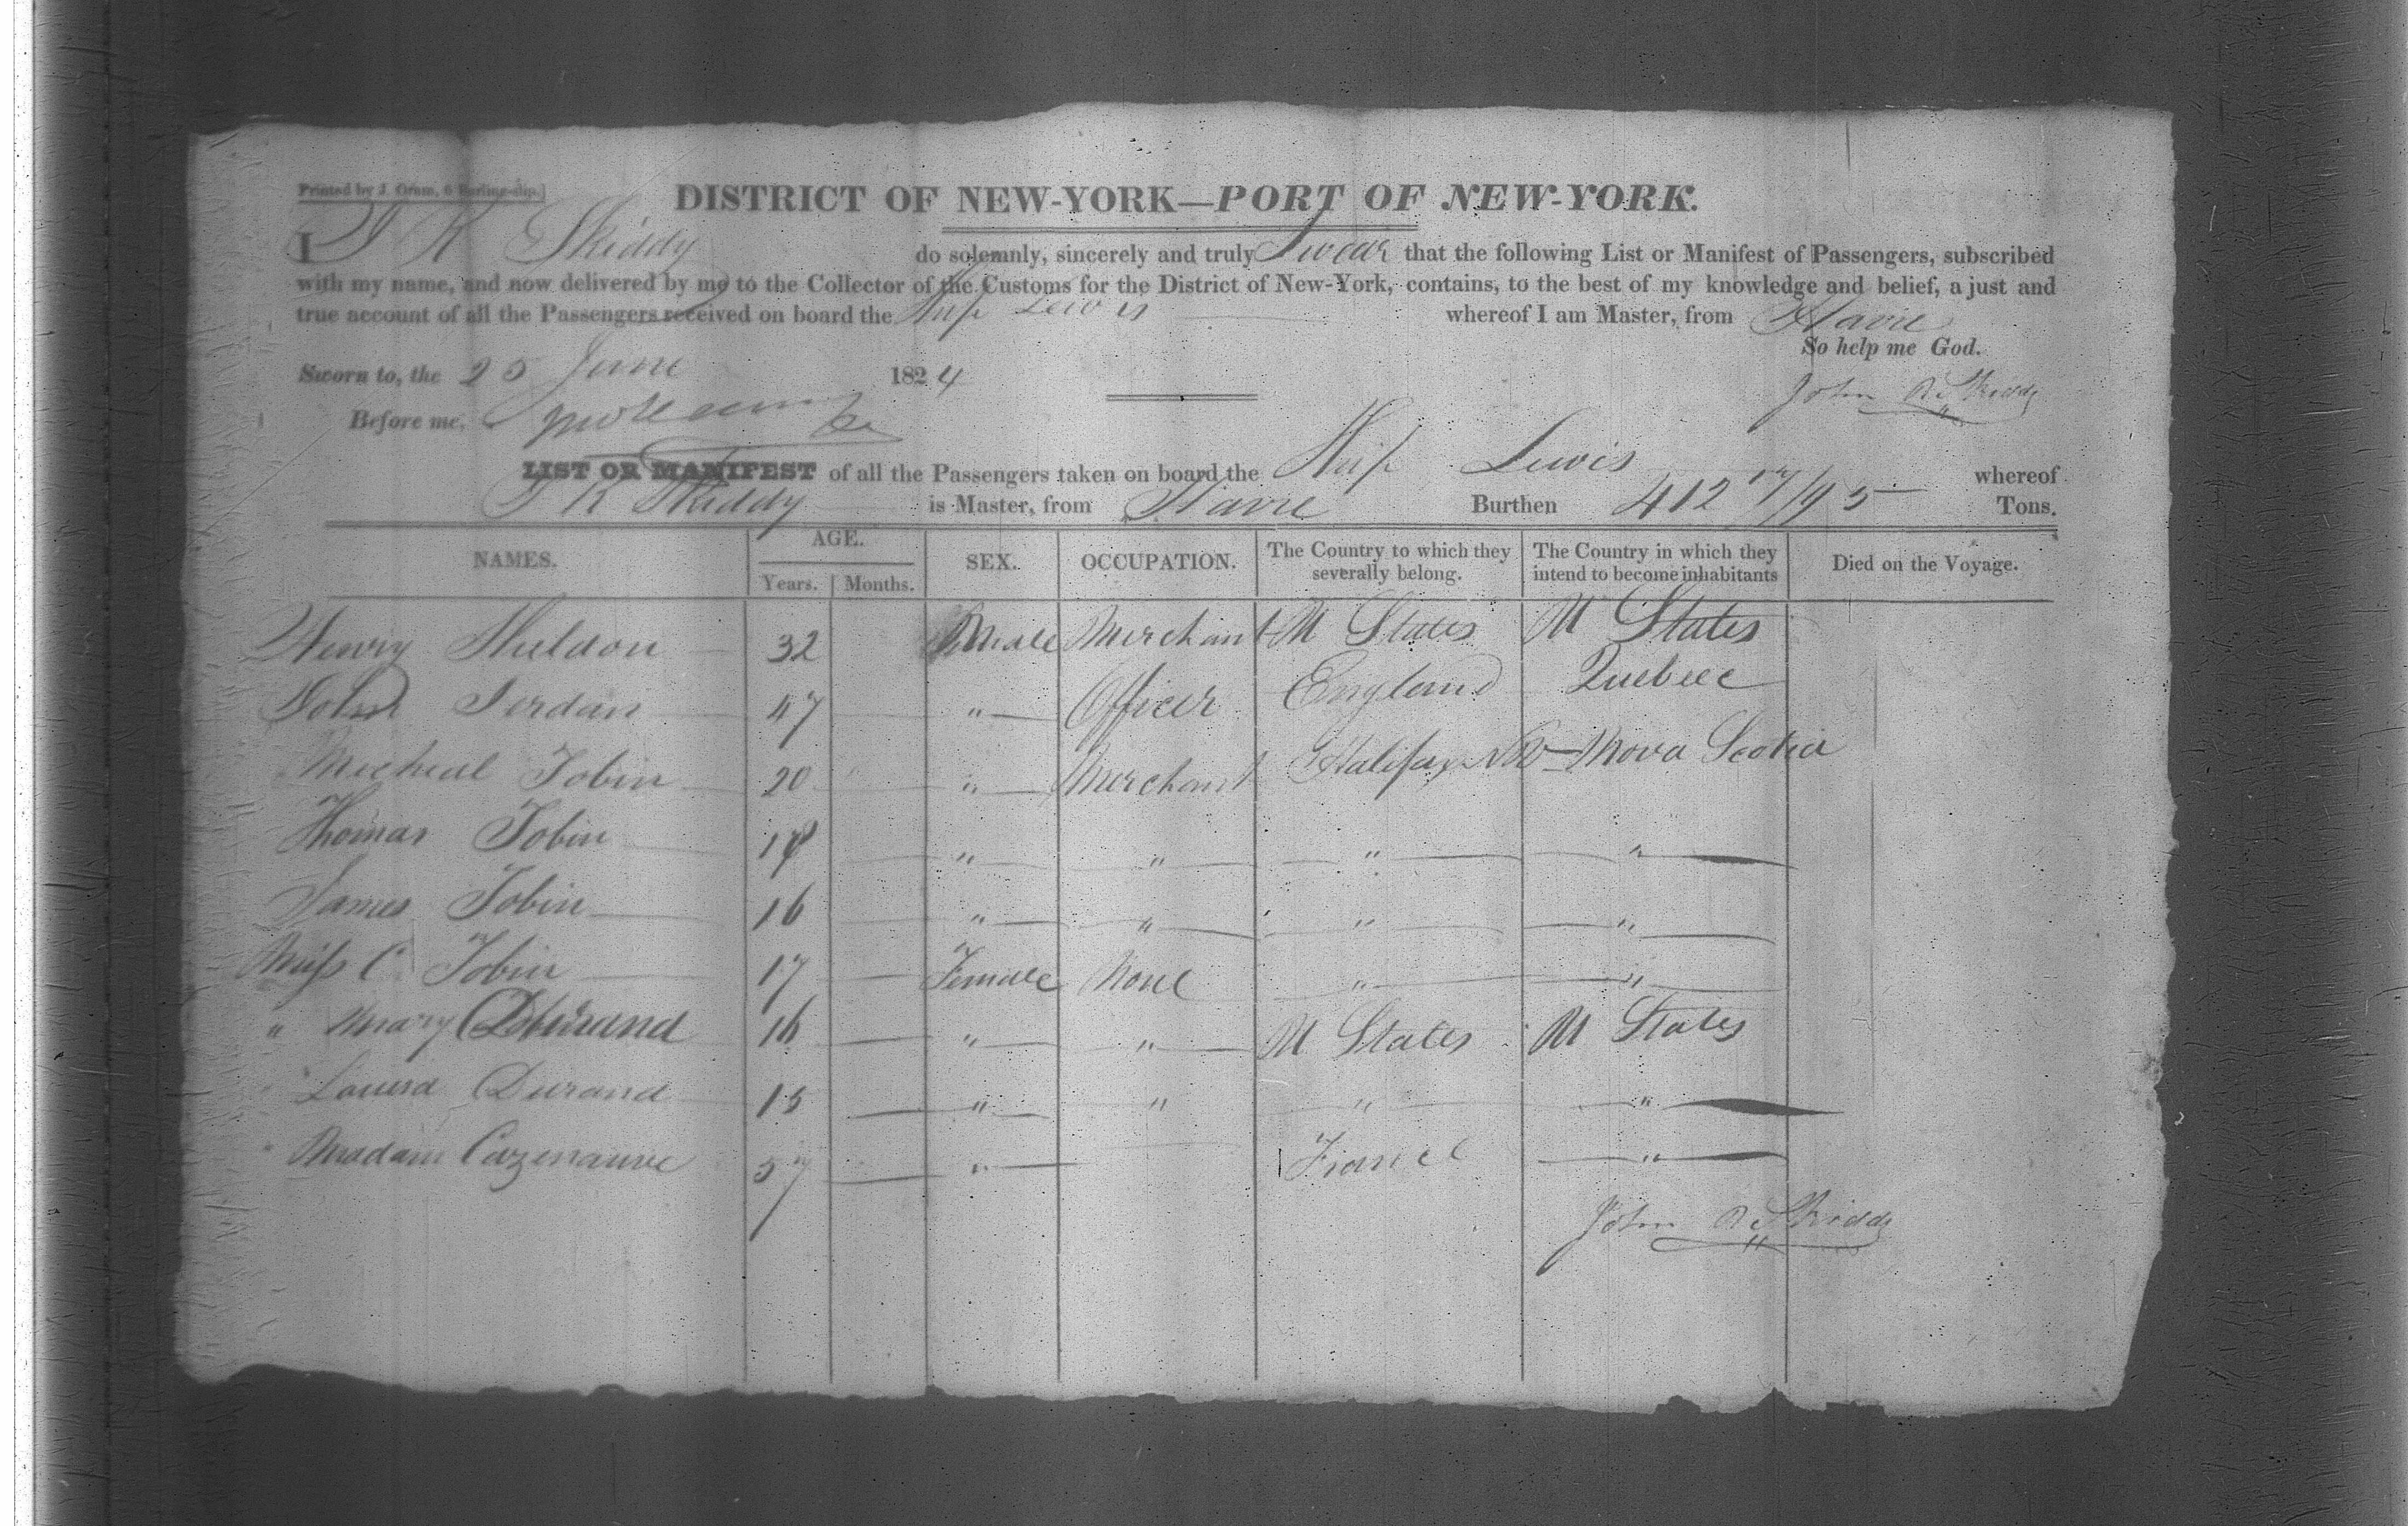 Printed by J. Oram, 6 Burling-slip.]
DISTRICT OF NEW-YORK—PORT OF NEW-YORK.
I J R Skiddy do solemnly, sincerely and truly Swear that the following List or Manifest of Passengers, subscribed
with my name, and now delivered by me to the Collector of the Customs for the District of New-York, contains, to the best of my knowledge and belief, a just and
true account of all the Passengers received on board the Ship Lewis whereof I am Master, from Havre
So help me God.
Sworn to, the 25 June 1824
John R Skiddy
Before me,
LIST OR MANIFEST of all the Passengers taken on board the Ship Lewis whereof
J R Skiddy is Master, from Havre Burthen 412 17/95 Tons.
NAMES. AGE. SEX. OCCUPATION. The Country to which they severally belong. The Country in which they intend to become inhabitants Died on the Voyage.
Years. Months.
Henry Sheldon 32 Male Merchant U States U States
John Jerdan 47 " Officer England Quebec
Micheal Tobin 20 " Merchant Halifax Nova Scotia
Thomas Tobin 18 " " " "
James Tobin 16 " " " "
Miss C. Tobin 17 Female None " "
" Mary Durand 16 " " U States U States
" Louisa Durand 15 " " " "
" Madam Cazenauve 57 " France "
John R Skiddy